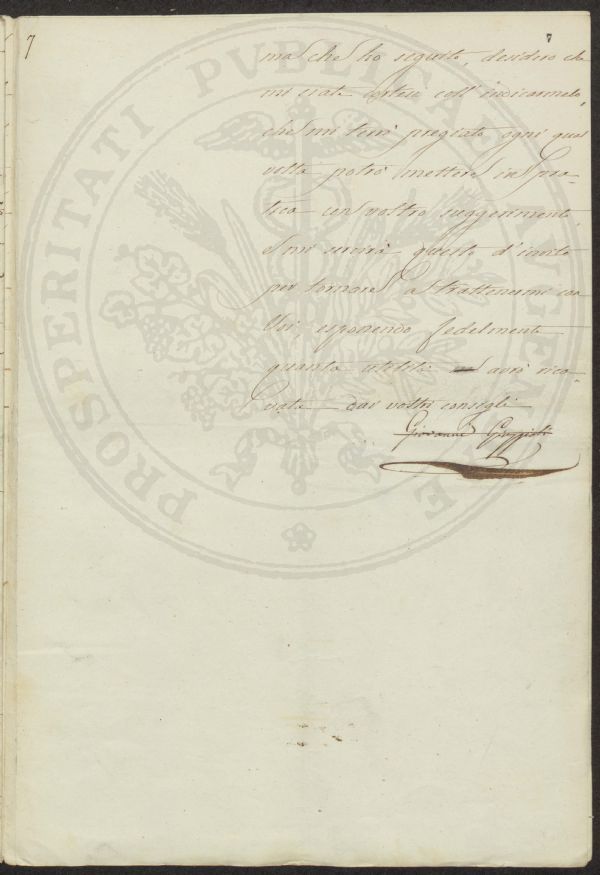 7
7
ma che ho seguito, desidero che
mi siate cortesi coll' indicarmelo,
che mi terrò pregiato ogni qual
volta potrò mettere in pra-
tica un vostro suggerimento
e mi servirà questo d' invito
per tornare a trattenermi con
Voi, esponendo fedelmente
quanta utilità avrò rica-
vata dai vostri consigli
Giovanni
PROSPERITATI PUBLICAE AUGENDAE